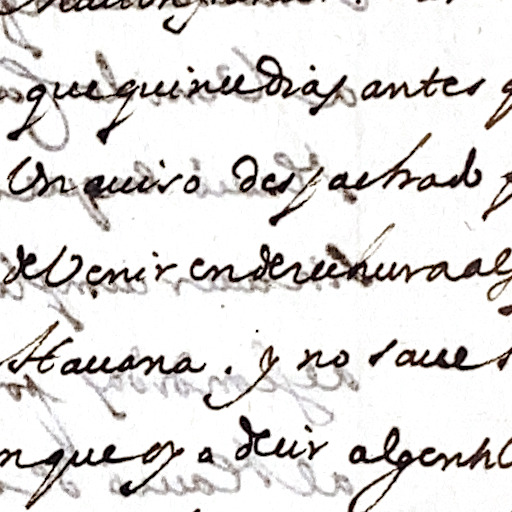 que quince dias antes q
Un auiso despachado p
de Venir en derechura al
Hauana. y no saue s
nque oy a decir al gen